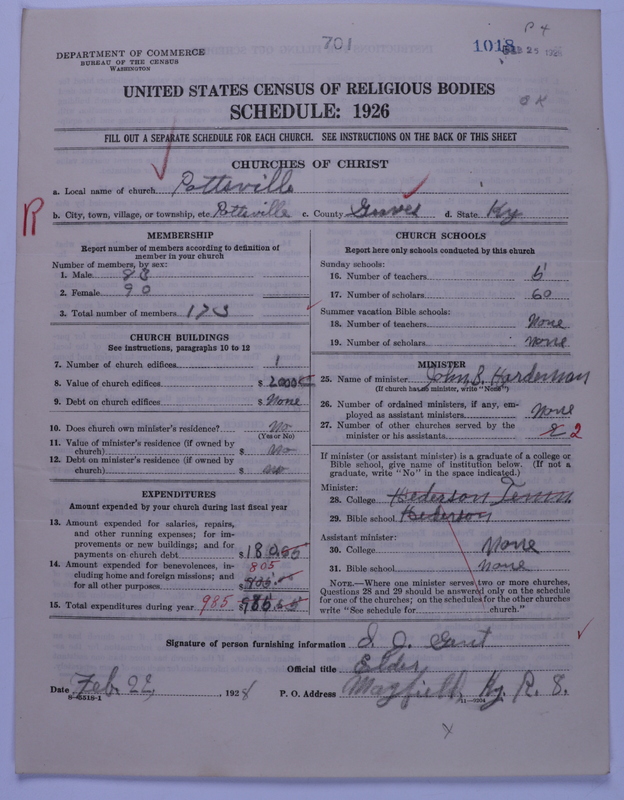 701
P 4
1018
FEB 25 1928
OK
DEPARTMENT OF COMMERCE
BUREAU OF THE CENSUS
WASHINGTON
UNITED STATES CENSUS OF RELIGIOUS BODIES
SCHEDULE: 1926
FILL OUT A SEPARATE SCHEDULE FOR EACH CHURCH. SEE INSTRUCTIONS ON THE BACK OF THIS SHEET
CHURCHES OF CHRIST
a. Local name of church Pottsville
R
b. City, town, village, or township, etc. Pottsville c. County Graves d. State Ky
MEMBERSHIP
Report number of members according to definition of
member in your church
Number of members, by sex:
1. Male 83
2. Female 90
3. Total number of members 173
CHURCH BUILDINGS
See instructions, paragraphs 10 to 12
7. Number of church edifices 1
8. Value of church edifices $ 2000
9. Debt on church edifices $ None
10. Does church own minister's residence? No
(Yes or No)
11. Value of minister's residence (if owned by
church) $ No
12. Debt on minister's residence (if owned by
church) $ no
EXPENDITURES
Amount expended by your church during last fiscal year
13. Amount expended for salaries, repairs,
and other running expenses; for im-
provements or new buildings; and for
payments on church debt $ 180.00
14. Amount expended for benevolences, in- 805
cluding home and foreign missions; and
for all other purposes
15. Total expenditures during year 985 $ 985
CHURCH SCHOOLS
Report here only schools conducted by this church
Sunday schools:
16. Number of teachers 5
17. Number of scholars 60
Summer vacation Bible schools:
18. Number of teachers None
19. Number of scholars None
MINISTER
25. Name of minister John B. Hardeman
(If church has no minister, write "None")
26. Number of ordained ministers, if any, em-
ployed as assistant ministers None
27. Number of other churches served by the
minister or his assistants 2 2
If minister (or assistant minister) is a graduate of a college or
Bible school, give name of institution below. (If not a
graduate, write "No" in the space indicated.)
Minister:
28. College Hederson Tenn.
29. Bible school Hederson
Assistant minister:
30. College None
31. Bible school None
NOTE.—Where one minister serves two or more churches,
Questions 28 and 29 should be answered only on the schedule
for one of the churches; on the schedules for the other churches
write "See schedule for church."
Signature of person furnishing information Gant
Official title Elder
Date Feb. 22, 1928 P. O. Address Mayfield, Ky. R. 8.
8-5518-1
11-9204
X